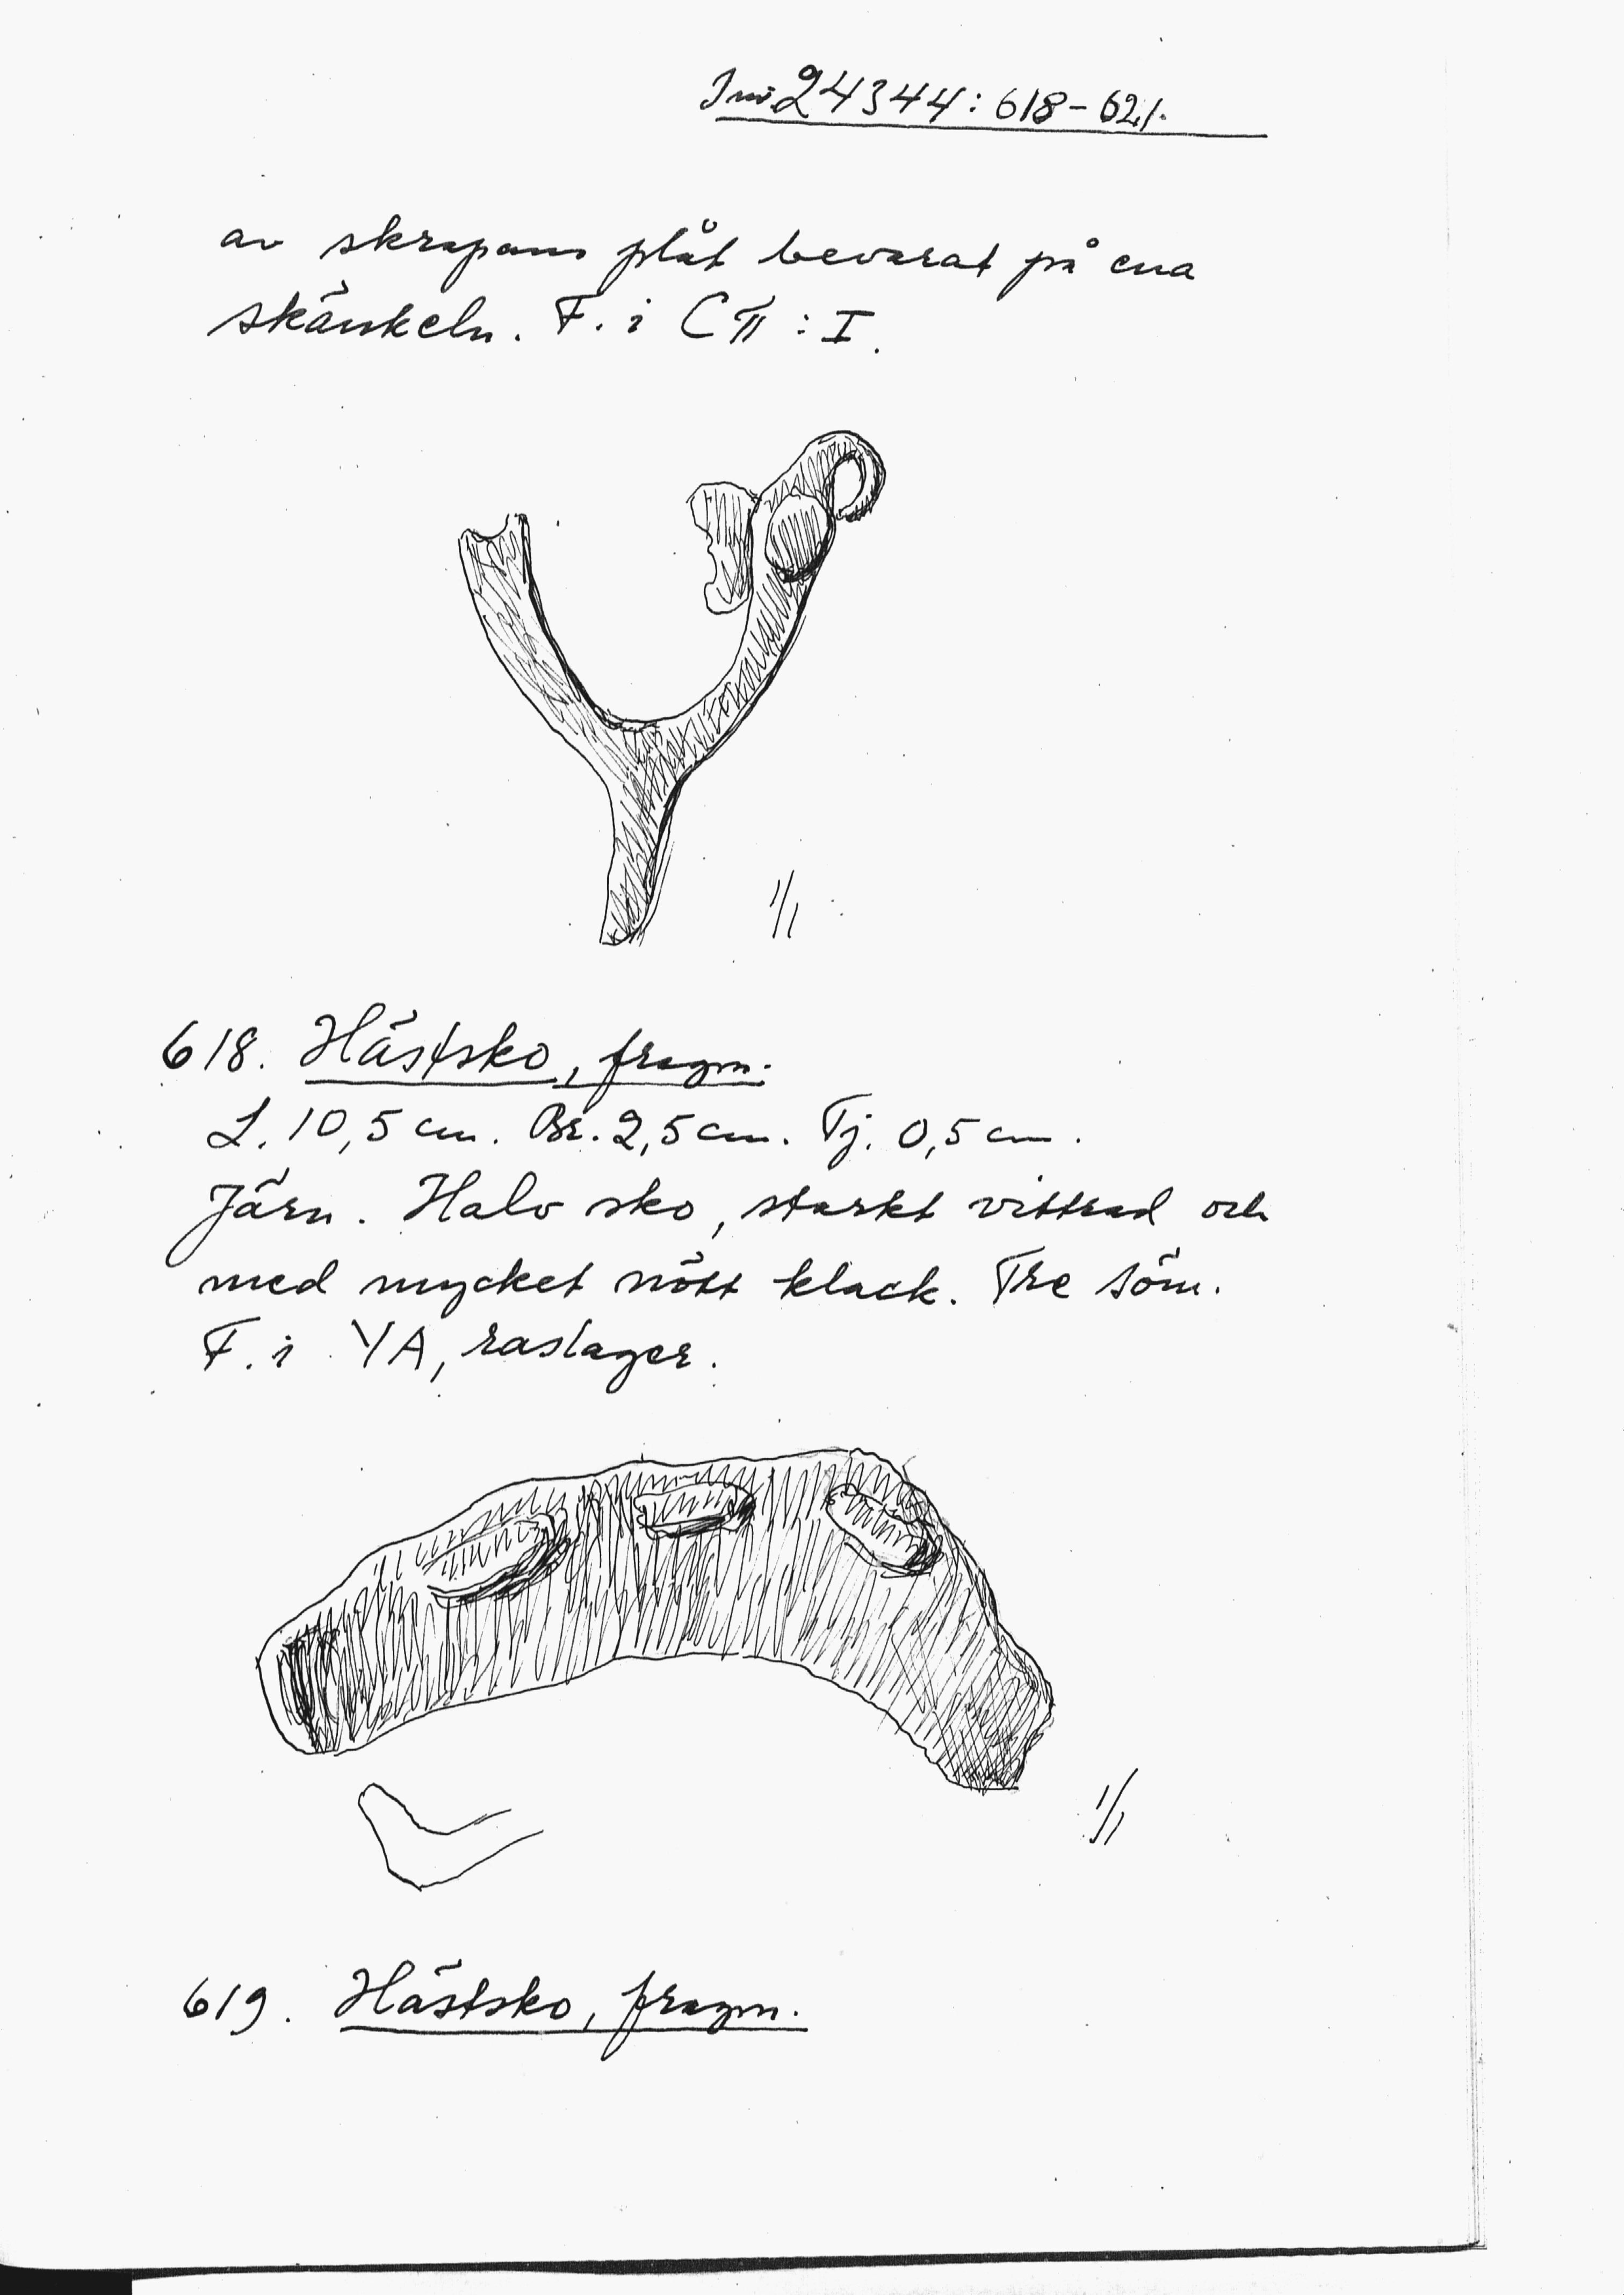 Inv. 24344: 618-621.
av skrapans plåt bevarat på ena
skänkeln. F. i CΠ : I.
1/1
618. Hästsko, fragm.
L. 10,5 cm. Br. 2,5 cm. Tj. 0,5 cm.
Järn. Halv sko, starkt vittrad och
med mycket nött klack. Tre söm.
F. i YA, raslager.
1/1
619. Hästsko, fragm.